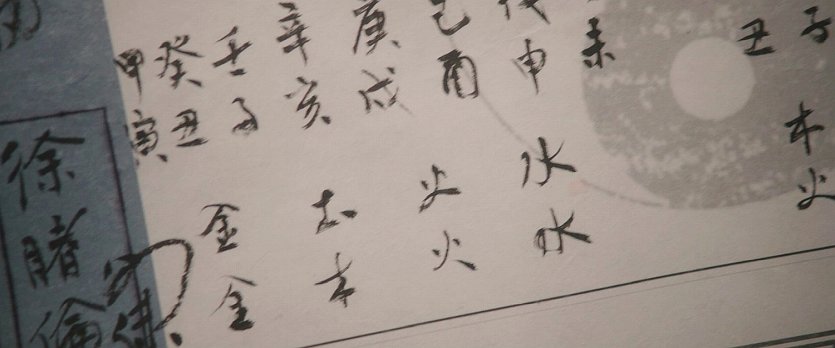 子 木火
丑
未
申 水水
己酉 火火
庚戌
辛亥 土木
壬子 金金
癸丑
甲寅
徐睹倫